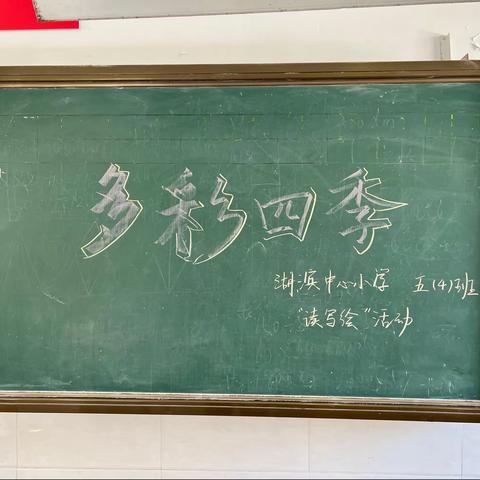 多彩四季
湖滨中心小学 五(4)班
“读写绘”活动